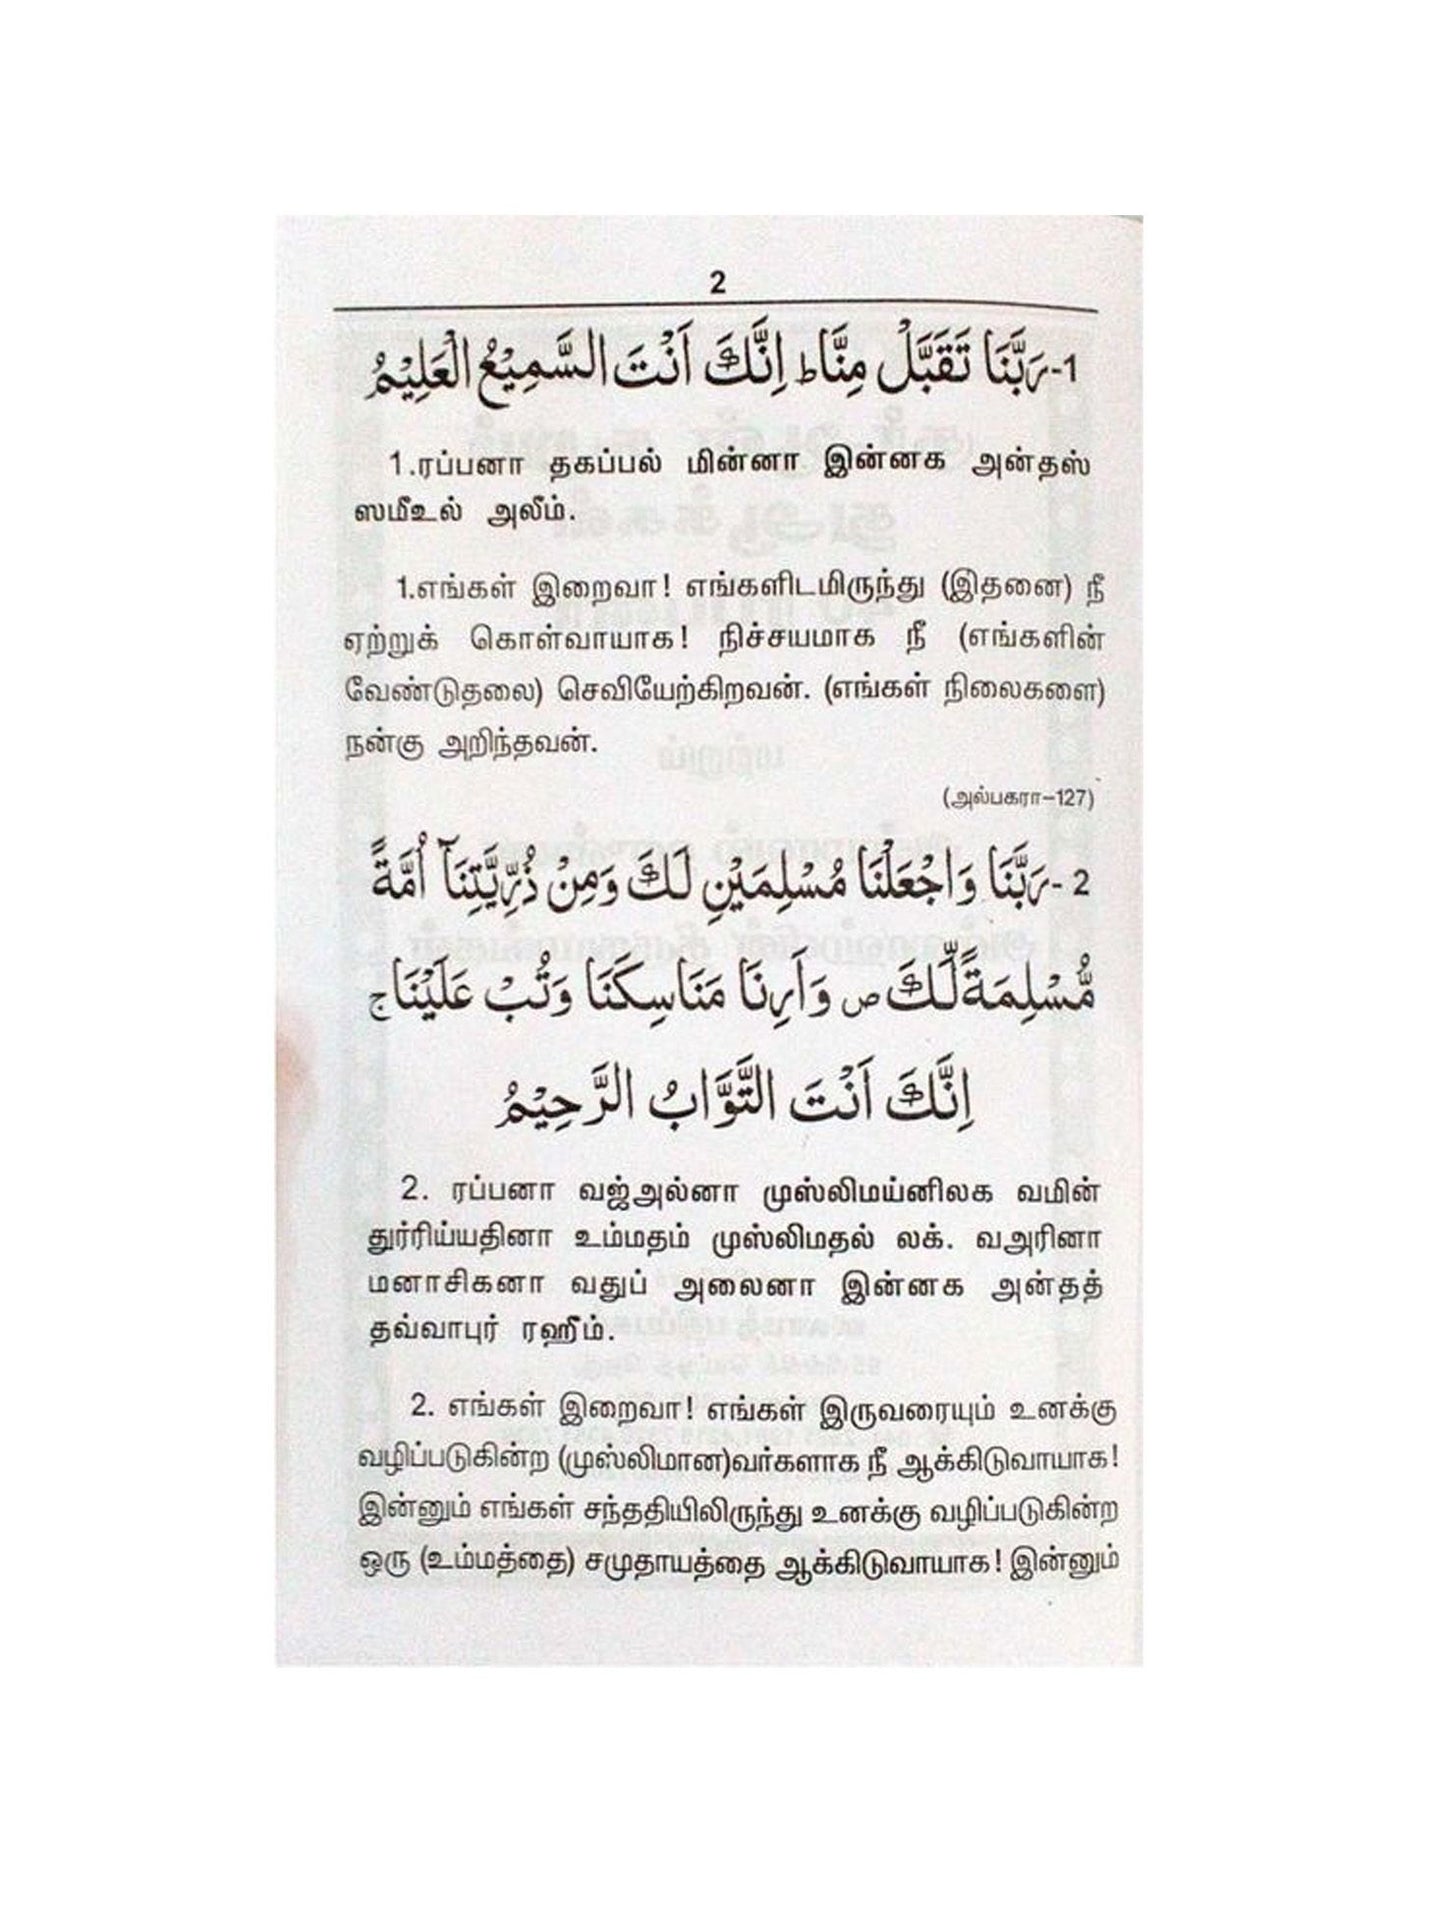 2
1-رَبَّنَا تَقَبَّلْ مِنَّا ط اِنَّكَ اَنْتَ السَّمِيْعُ الْعَلِيْمُ
1.ரப்பனா தகப்பல் மின்னா இன்னக அன்தஸ்
ஸமீஉல் அலீம்.
1.எங்கள் இறைவா! எங்களிடமிருந்து (இதனை) நீ
ஏற்றுக் கொள்வாயாக! நிச்சயமாக நீ (எங்களின்
வேண்டுதலை) செவியேற்கிறவன். (எங்கள் நிலைகளை)
நன்கு அறிந்தவன்.
(அல்பகரா-127)
2-رَبَّنَا وَاجْعَلْنَا مُسْلِمَيْنِ لَكَ وَمِنْ ذُرِّيَّتِنَآ اُمَّةً
مُّسْلِمَةً لَّكَ ص وَاَرِنَا مَنَاسِكَنَا وَتُبْ عَلَيْنَا ج
اِنَّكَ اَنْتَ التَّوَّابُ الرَّحِيْمُ
2. ரப்பனா வஜ்அல்னா முஸ்லிமய்னிலக வமின்
துர்ரிய்யதினா உம்மதம் முஸ்லிமதல் லக். வஅரினா
மனாசிகனா வதுப் அலைனா இன்னக அன்தத்
தவ்வாபுர் ரஹீம்.
2. எங்கள் இறைவா! எங்கள் இருவரையும் உனக்கு
வழிப்படுகின்ற (முஸ்லிமான)வர்களாக நீ ஆக்கிடுவாயாக!
இன்னும் எங்கள் சந்ததியிலிருந்து உனக்கு வழிப்படுகின்ற
ஒரு (உம்மத்தை) சமுதாயத்தை ஆக்கிடுவாயாக! இன்னும்